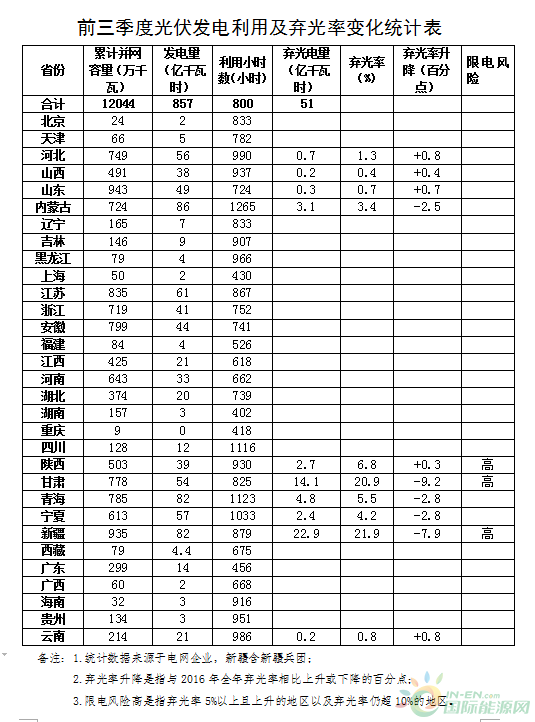 前三季度光伏发电利用及弃光率变化统计表
省份 累计并网容量（万千瓦） 发电量（亿千瓦时） 利用小时数（小时） 弃光电量（亿千瓦时） 弃光率（%） 弃光率升降（百分点） 限电风险
合计 12044 857 800 51
北京 24 2 833
天津 66 5 782
河北 749 56 990 0.7 1.3 +0.8
山西 491 38 937 0.2 0.4 +0.4
山东 943 49 724 0.3 0.7 +0.7
内蒙古 724 86 1265 3.1 3.4 -2.5
辽宁 165 7 833
吉林 146 9 907
黑龙江 79 4 966
上海 50 2 430
江苏 835 61 867
浙江 719 41 752
安徽 799 44 741
福建 84 4 526
江西 425 21 618
河南 643 33 662
湖北 374 20 739
湖南 157 3 402
重庆 9 0 418
四川 128 12 1116
陕西 503 39 930 2.7 6.8 +0.3 高
甘肃 778 54 825 14.1 20.9 -9.2 高
青海 785 82 1123 4.8 5.5 -2.8
宁夏 613 57 1033 2.4 4.2 -2.8
新疆 935 82 879 22.9 21.9 -7.9 高
西藏 79 4.4 675
广东 299 14 456
广西 60 2 668
海南 32 3 916
贵州 134 3 951
云南 214 21 986 0.2 0.8 +0.8
备注：1.统计数据来源于电网企业，新疆含新疆兵团；
2.弃光率升降是指与2016年全年弃光率相比上升或下降的百分点；
3.限电风险高是指弃光率5%以上且上升的地区以及弃光率仍超10%的地区。
IN-EN.com
国际能源网